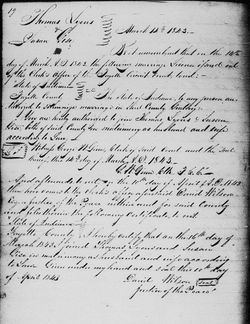 19
Thomas Lyons
March 14th 1843.
Susan Cise
Be it remembered that on the 14th
day of March A.D. 1843 the following marriage License issued out
of the Clerk's Office of the Fayette Circuit Court to wit:
State of Indiana
Fayette County The State of Indiana, to any person au-
thorized to Solemnize marriages in said County Greeting:
You are hereby authorized to join Thomas Lyons & Susan
Cise both of said County in matrimony as husband and wife
according to Law
Witness Clerk of said Court and the Seal
this 14th day of March A.D. 1843.
Clk
And afterwards to wit on the 10th day of April A.D. 1843
then came to the Clerk's Wilson
Esqr a justice of the Peace within and for said County
and following Certificate to wit
State of Indiana
Fayette County I hereby certify that on the 16th day of
March 1843. I joined Thomas Lyons and Susan
Cise in matrimony as husband and wife according
to Law Given under my hand and seal this 10th day
of April 1843.
David Wilson Seal
justice of the Peace